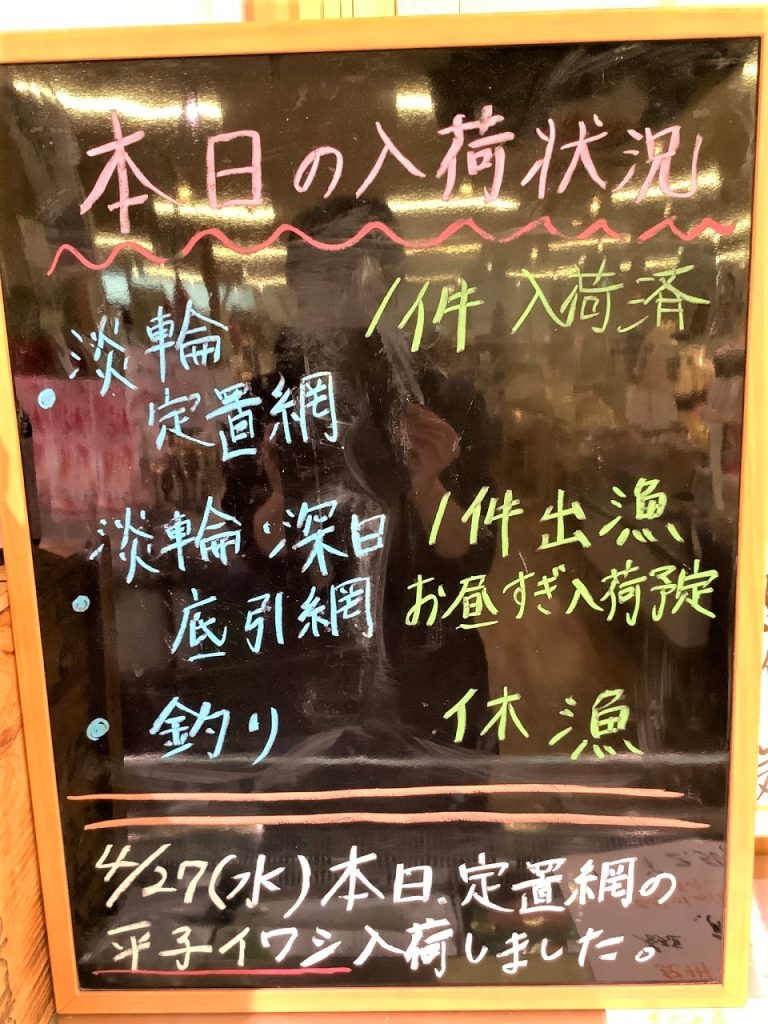 本日の入荷状況
・淡輪 1件 入荷済
定置網
・淡輪・深日 1件出漁
底引網 お昼すぎ入荷予定
・釣り 休漁
4/27(水)本日、定置網の
平子イワシ入荷しました。